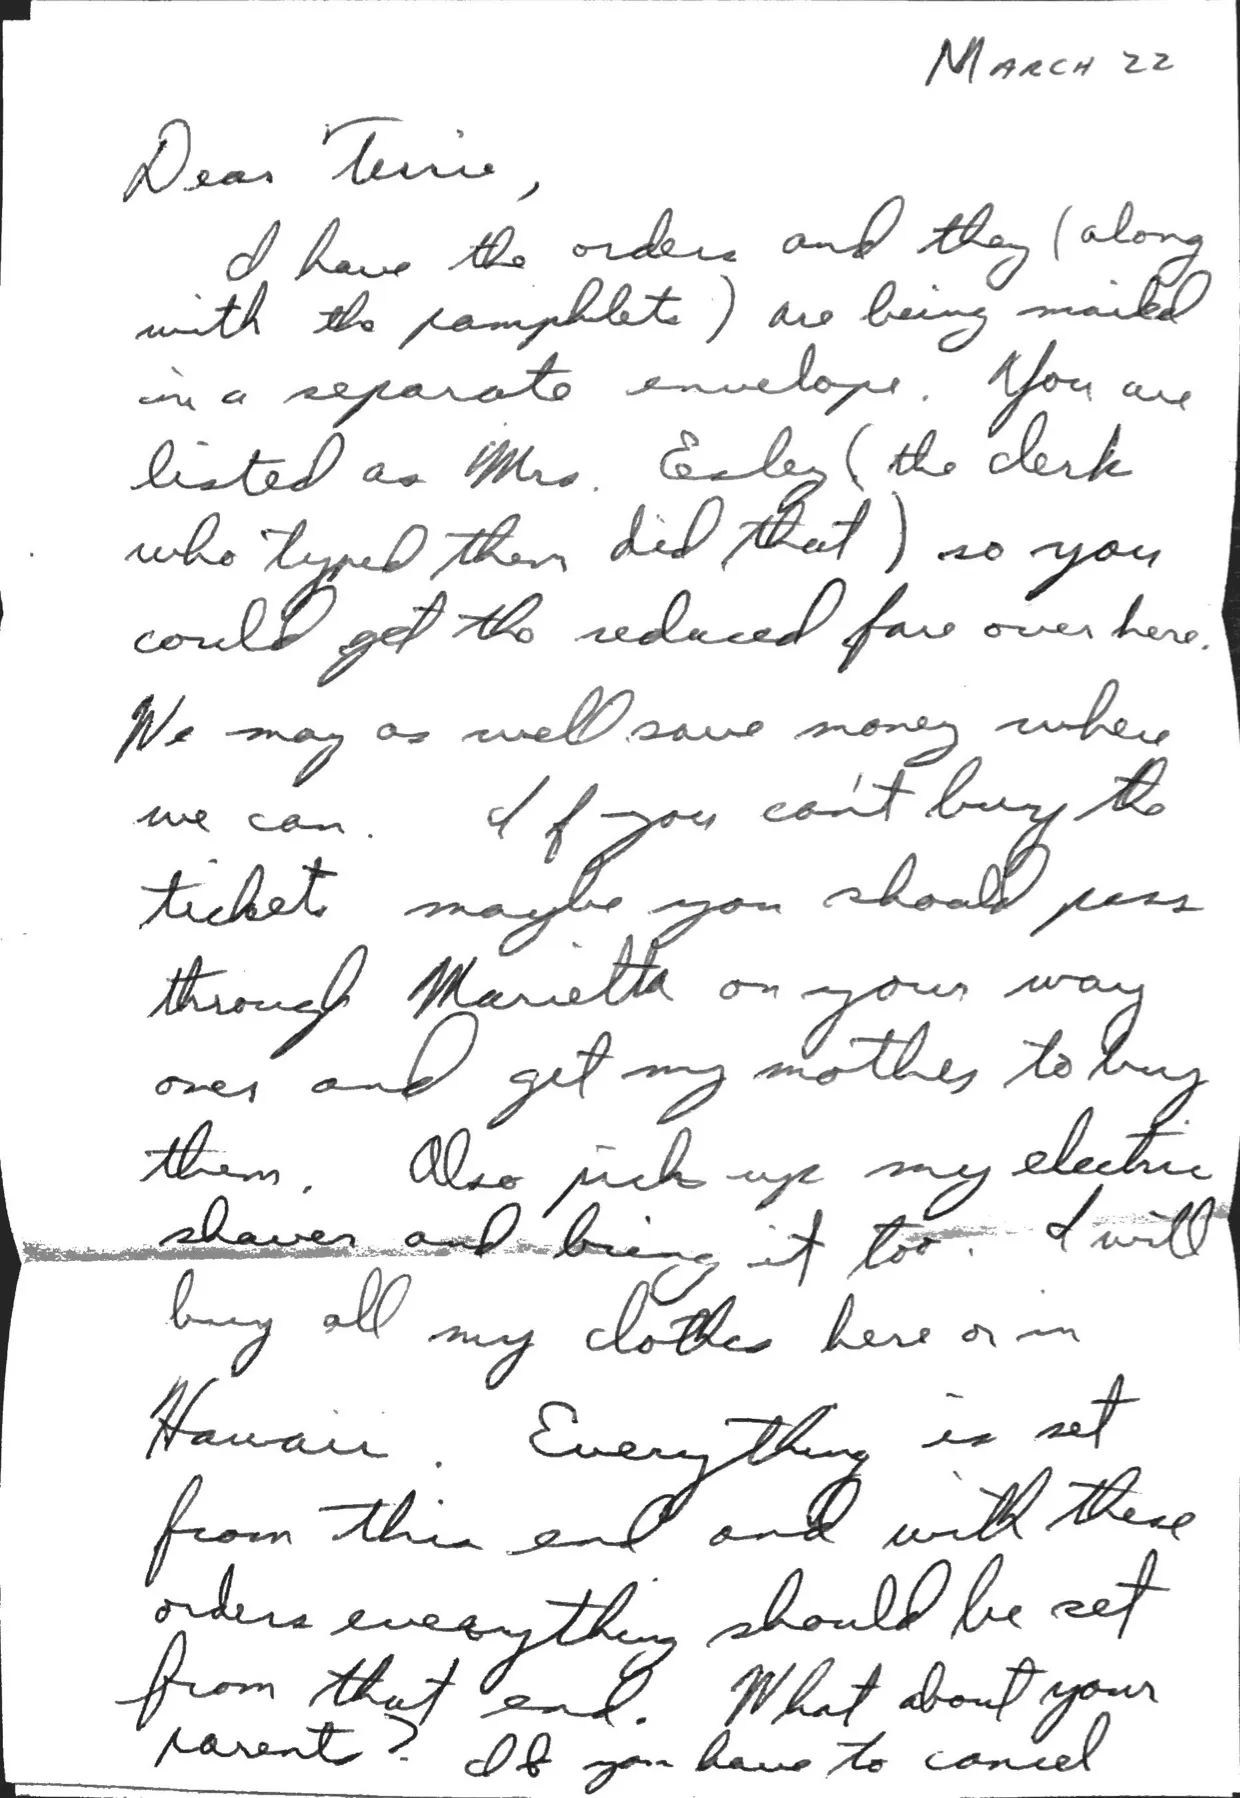 March 22
Dear Terrie,
I have the orders and they (along
with the pamphlets) are being mailed
in a separate envelope. You are
listed as Mrs. Easley (the clerk
who typed them did that) so you
could get the reduced fare over here.
We may as well save money where
we can. If you can't buy the
tickets maybe you should pass
through Marietta on your way
over and get my mother to buy
them. Also pick up my electric
shaver and bring it too. I will
buy all my clothes here or in
Hawaii. Everything is set
from this end and with these
orders everything should be set
from that end. What about your
parents? If you have to cancel